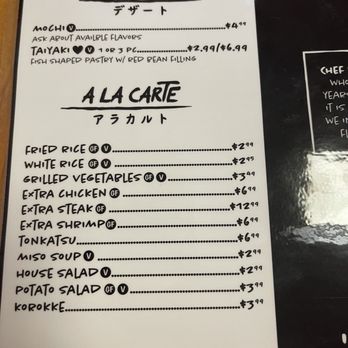 デザート
MOCHI V $4.99
ASK ABOUT AVAILBLE FLAVORS
TAIYAKI ♥ V 1 OR 3 PC $2.99/$6.99
FISH SHAPED PASTRY W/ RED BEAN FILLING
A LA CARTE
アラカルト
FRIED RICE GF V $2.99
WHITE RICE GF V $2.95
GRILLED VEGETABLES GF V $3.99
EXTRA CHICKEN GF $6.99
EXTRA STEAK GF $12.99
EXTRA SHRIMP GF $6.99
TONKATSU $6.99
MISO SOUP V $2.99
HOUSE SALAD V $2.99
POTATO SALAD GF V $3.99
KOROKKE $3.99
CHEF
WHO
YEAR
IT IS
WE IN
FL